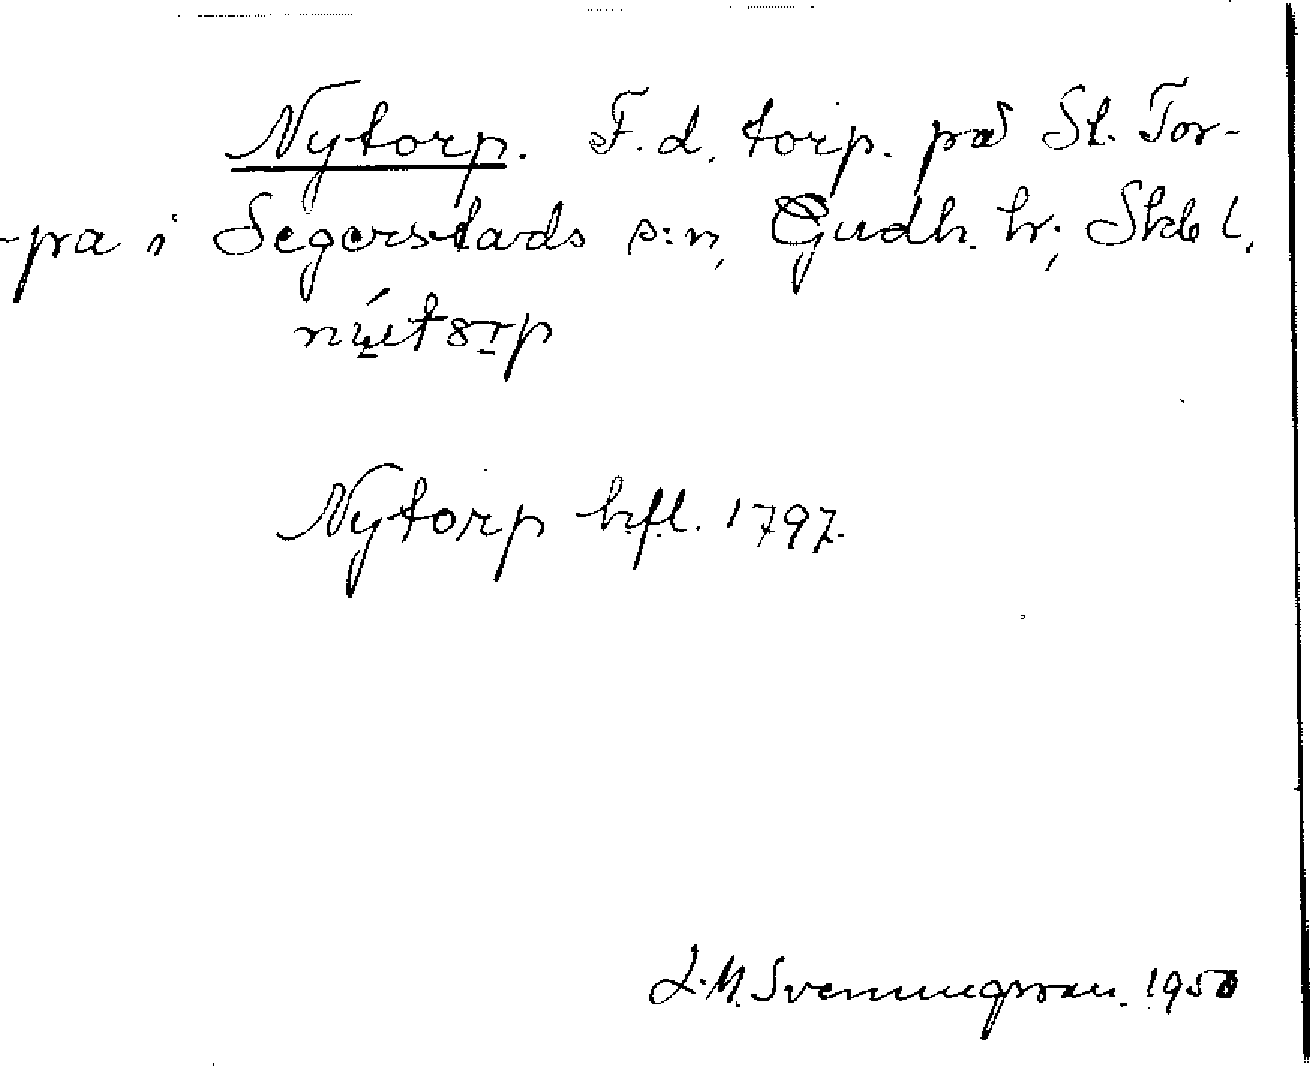 Nytorp. F.d. torp. på St. Tor-
-pa i Segerstads s:n, Gudh. hr; Skb l.
Nytorp hfl. 1797.
L.M. Svenningsson. 1950